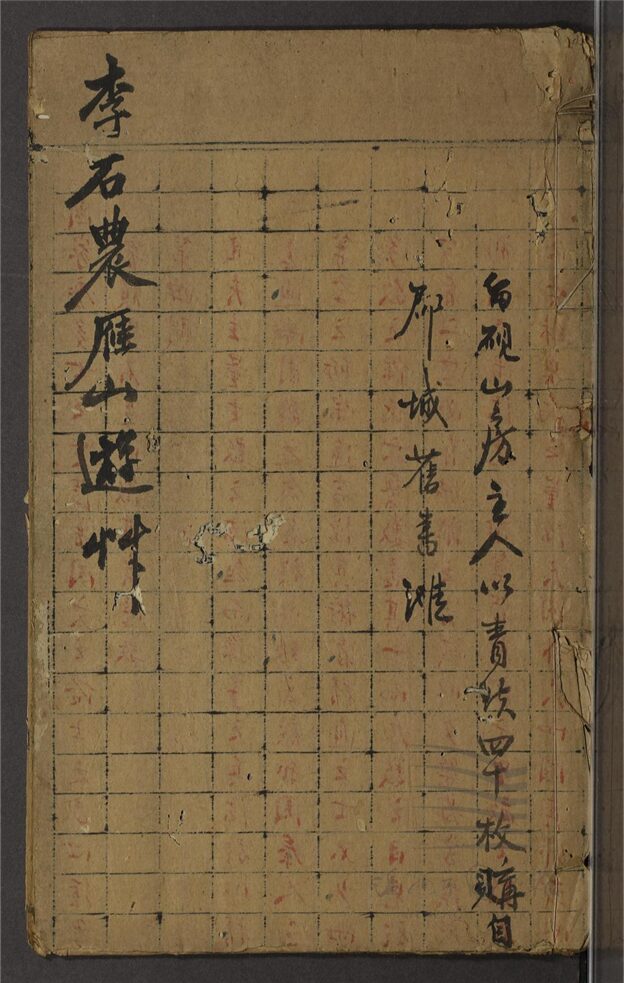 硯山房主人以青蚨四十枚購自
郡城舊書滩
李石農雁山遊艸